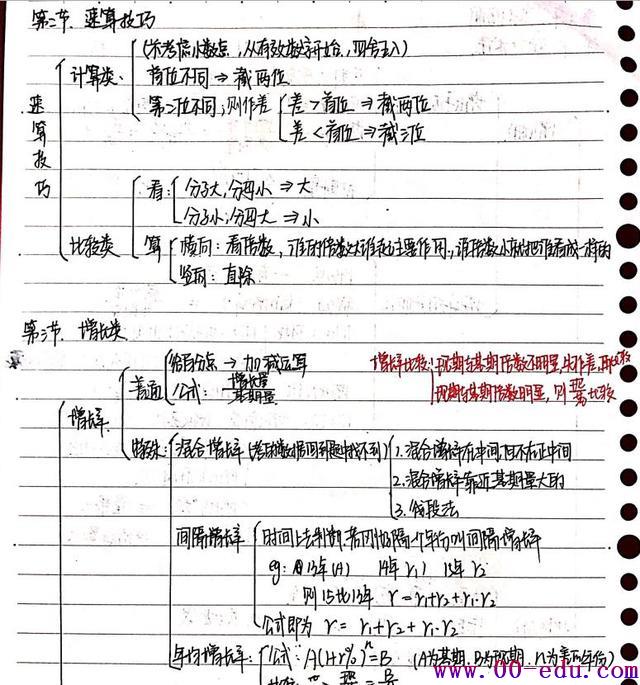 第二节. 速算技巧
速算技巧
计算类:
(不考虑小数点, 从有效数字开始, 四舍五入)
首位不同 ⇒ 截两位
第二位不同, 则作差
差>首位 ⇒ 截两位
差<首位 ⇒ 截三位
比较类
看:
分子大, 分母小 ⇒ 大
分子小, 分母大 ⇒ 小
算
横向: 看倍数, 谁的倍数大谁起主要作用, 谁倍数小就把谁看成一样的
竖向: 直除
第三节. 增长类
增长率
普通
给百分点 → 加减运算
公式: 增长量/基期量
增长率比较:
现期与基期倍数不明显, 先作差, 再比较
现期与基期倍数明显, 则 现/基 比较
特殊:
混合增长率
1. 混合增长率在中间, 但不在正中间
2. 混合增长率靠近基期量大的
3. 线段法
间隔增长率
时间上去判断, 若刚好隔一个年份叫间隔增长率
eg: 13年(A) 14年 r₁) 15年 r₂
则15比13年 r = r₁+r₂+r₁·r₂
公式即为 r = r₁+r₂+r₁·r₂
年均增长率:
公式: A(1+r%)ⁿ=B (A为基期, B为现期, n为差的年份)
www.00-edu.com